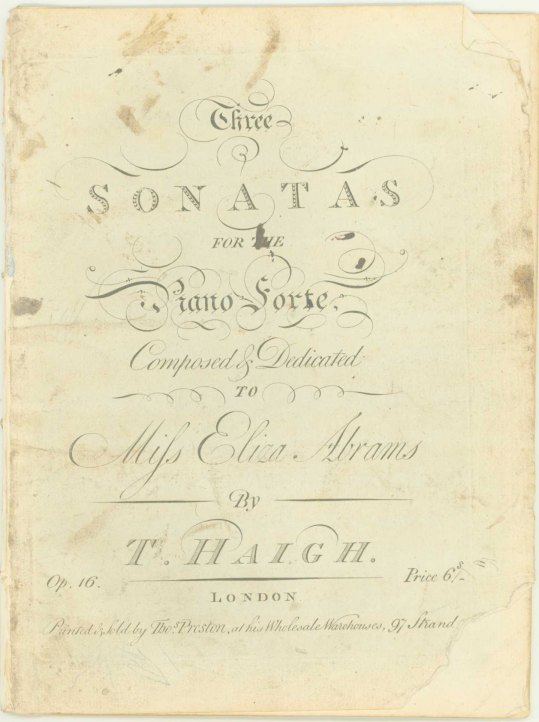 Three
SONATAS
FOR THE
Piano Forte.
Composed & Dedicated
TO
Miſs Eliza Abrams
By
T. HAIGH.
Op. 16.
Price 6/s-
LONDON
Printed & sold by Thos. Preston, at his Wholesale Warehouses, 97 Strand